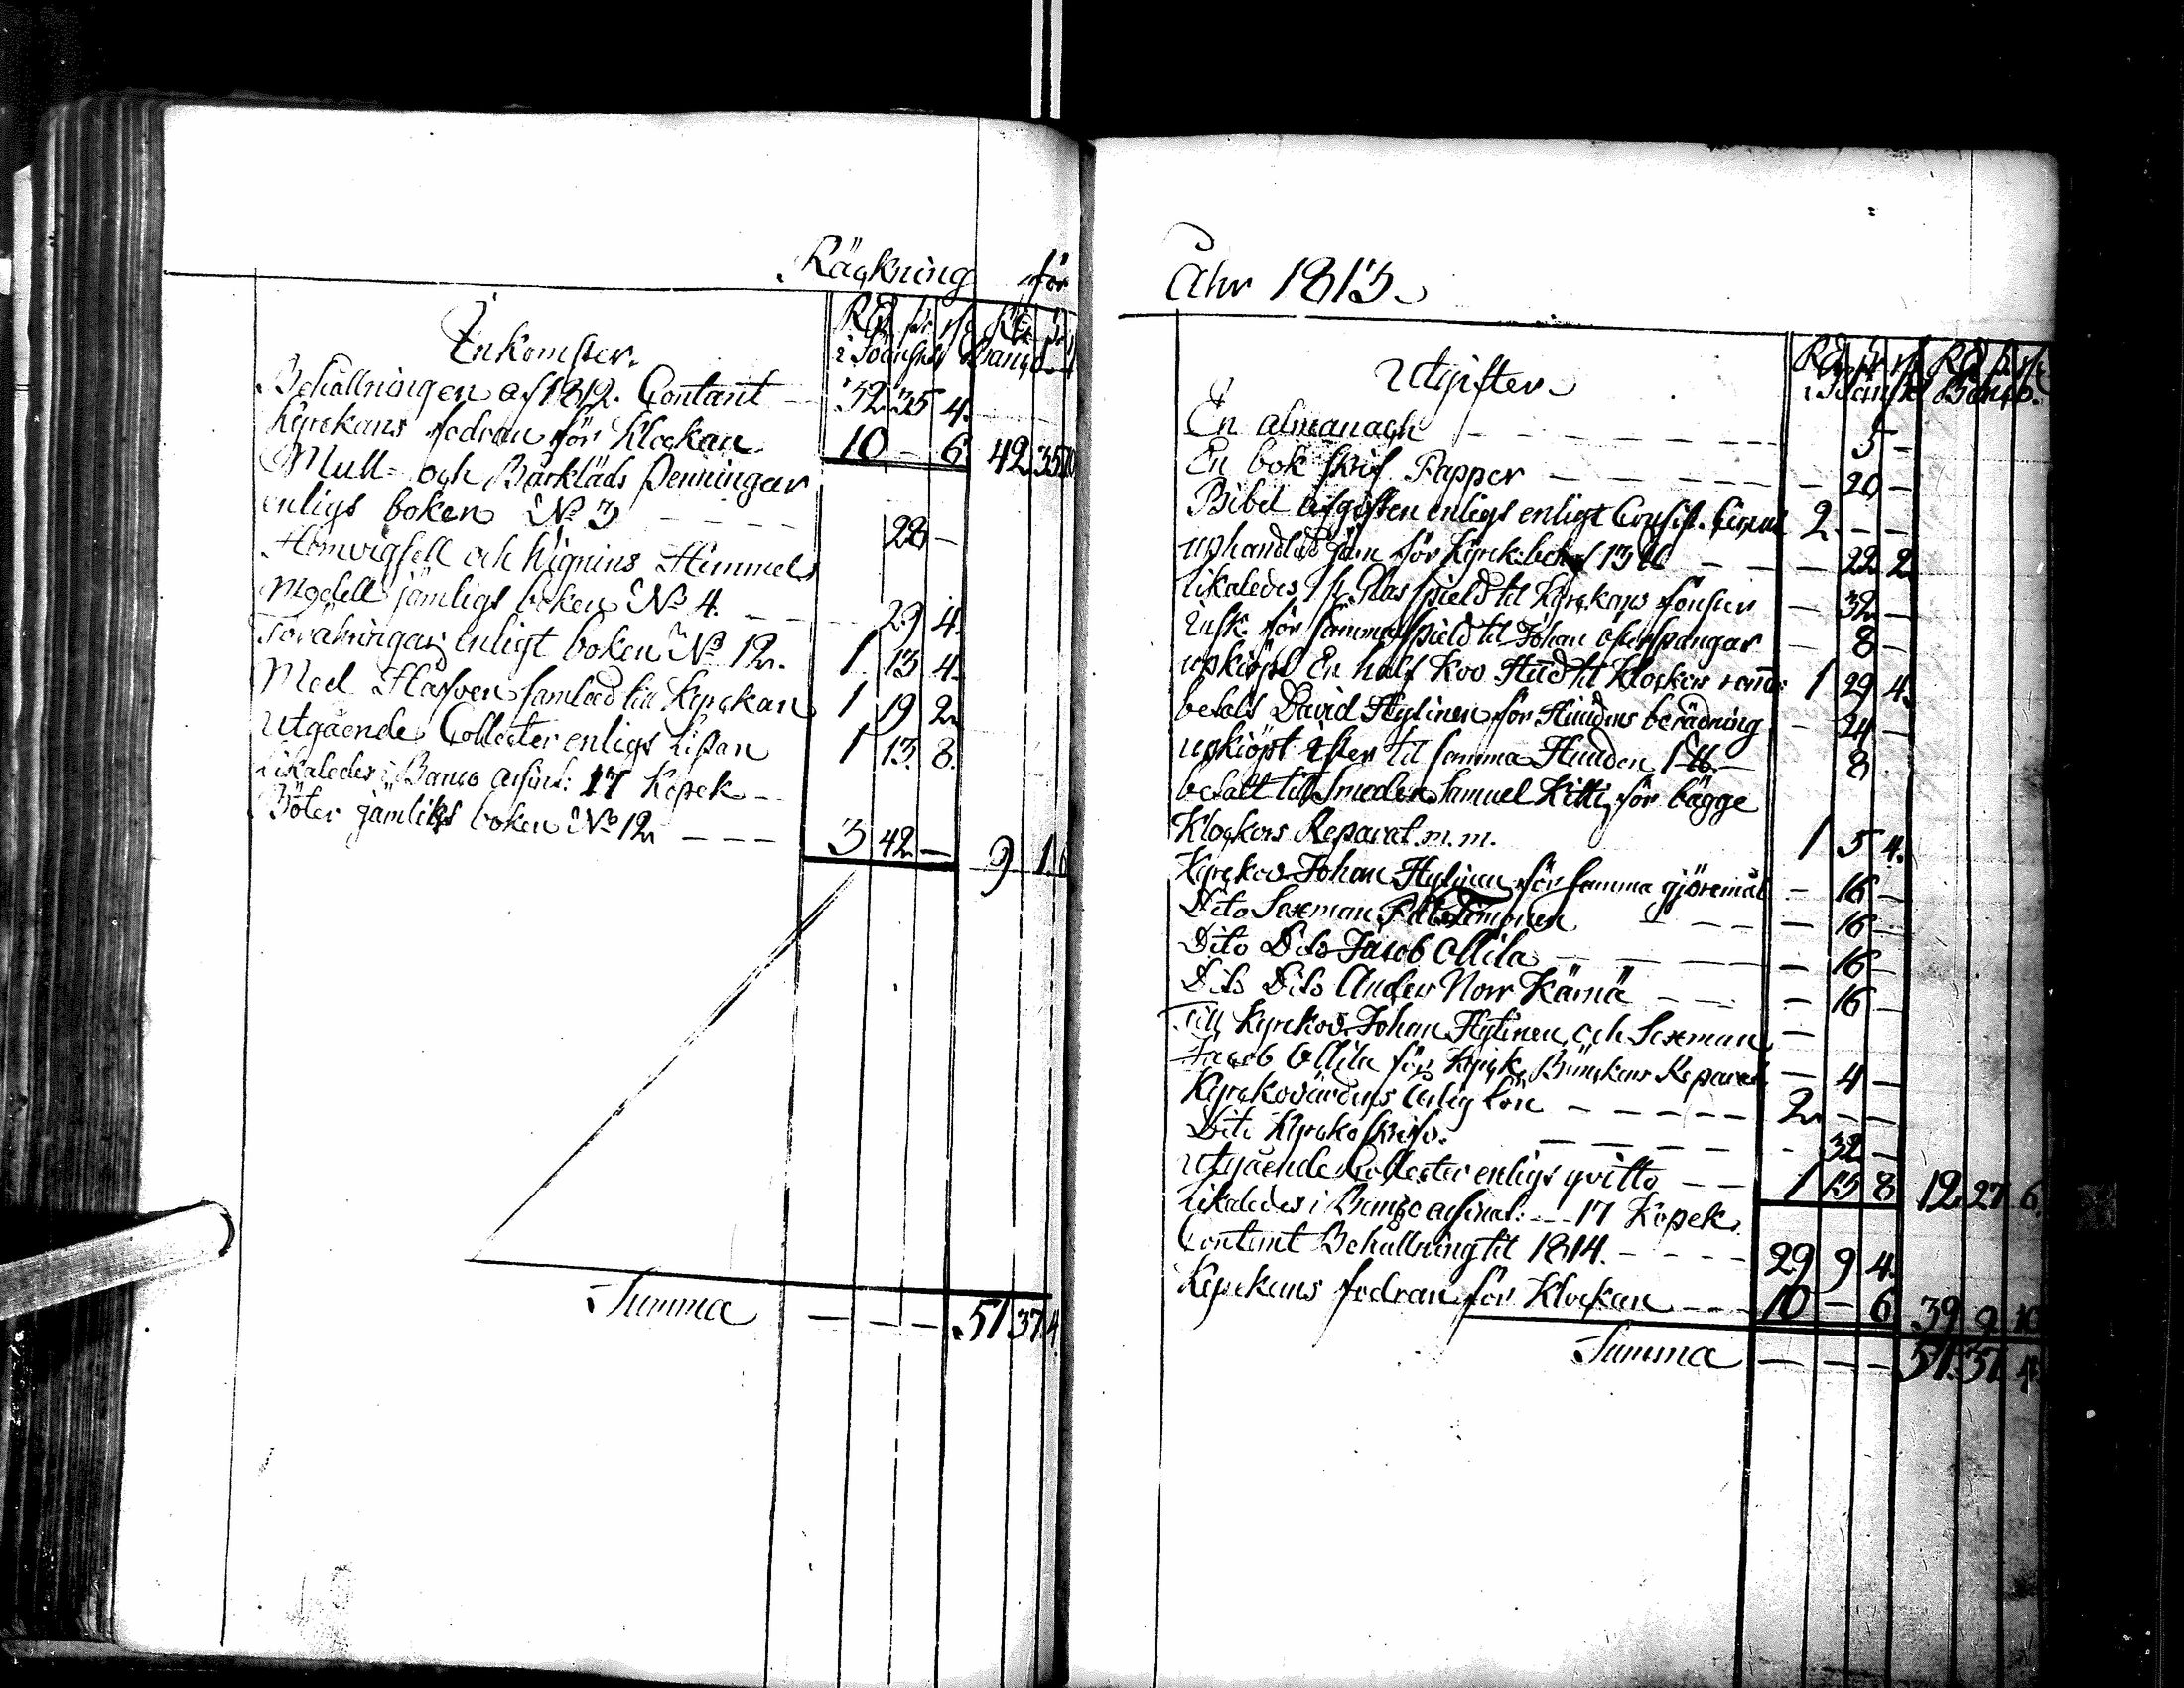 Räckning för
Inkomster.
Rd sk rs Rd sk rs
i Svänskt Banco
Behållningen af 1812. Contant 32 35 4.
Kyrckans fodran för Klockan 10 - 6 42 35 10
Mull- och Bårkläds Penningar
enligt boken No 3 - - - - 28 -
Himmels
Modell jämligt boken No 4. - - - 29 4.
enligt boken No 12. 1 13 4.
Med Håfven samlad till Kyrckan 1 19 2
Utgående Collecter enligt Listan 1 13. 8.
Likaledes i Banco assinat: 17 Kopek - -
Böter jämlikt boken No 12 - - - 3 42 - 9 1 6
Summa - - - 51 37 4.
Åhr 1813.
Utgifter
Rd sk rs Rd sk rs
i Svänskt Banco.
En almanach - - - - - - - 5 -
En bok skrif Papper - - - - - - 20 -
Bibel afgiften enligt enligt Consist. Circul 2 - -
uphandlad järn för Kyrck. behof 13 ℔ - - - 22 2
likaledes Glas spield til Kyrckans fönster - 32 -
för samma spield til Johan - 8 -
upköpt En half Koo Hud til Klockors 1 29 4.
betalt David Hylinen för Hudens berädning - 24 -
upköpt til samma Huden 1 ℔ - 8
betalt till Smeden Samuel Kitti för bägge
Klockors Reparat. m. m. 1 5 4.
Kyrckov. Johan Hylinen för samma gjöremål - 16 -
Dito Sexman - - - - 16 -
Dito Dito Jacob Ollila - - - - 16 -
Dito Dito Anders Norr Kämä - - - - 16 -
Till Kyrckov. Johan Hylinen och Sexman -
Jacob Ollila för Kyrck Bänckars Reparat. - 4 -
Kyrckovärdens årlig lön - - - - - 2 - -
Dito Kyrcko - - - - - - 32 -
Utgående Collecter enligt qvitto - - 1 13 8 12 27 6.
Likaledes i Banco assinat: - - 17 Kopek.
Contant Behållning til 1814. - - - - 29 9 4.
Kyrckans fodran för Klockan - - - 10 - 6 39 9 10
Summa - - - 51. 37. 4.